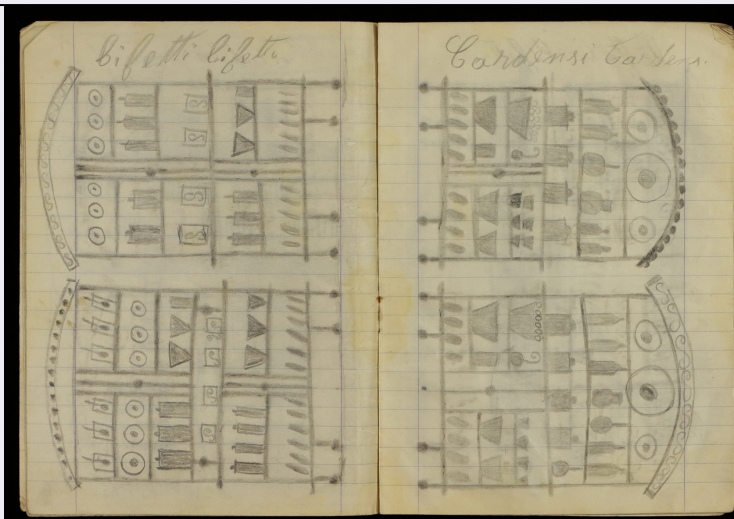 bifetti bifetti
Cardensi Cardens.